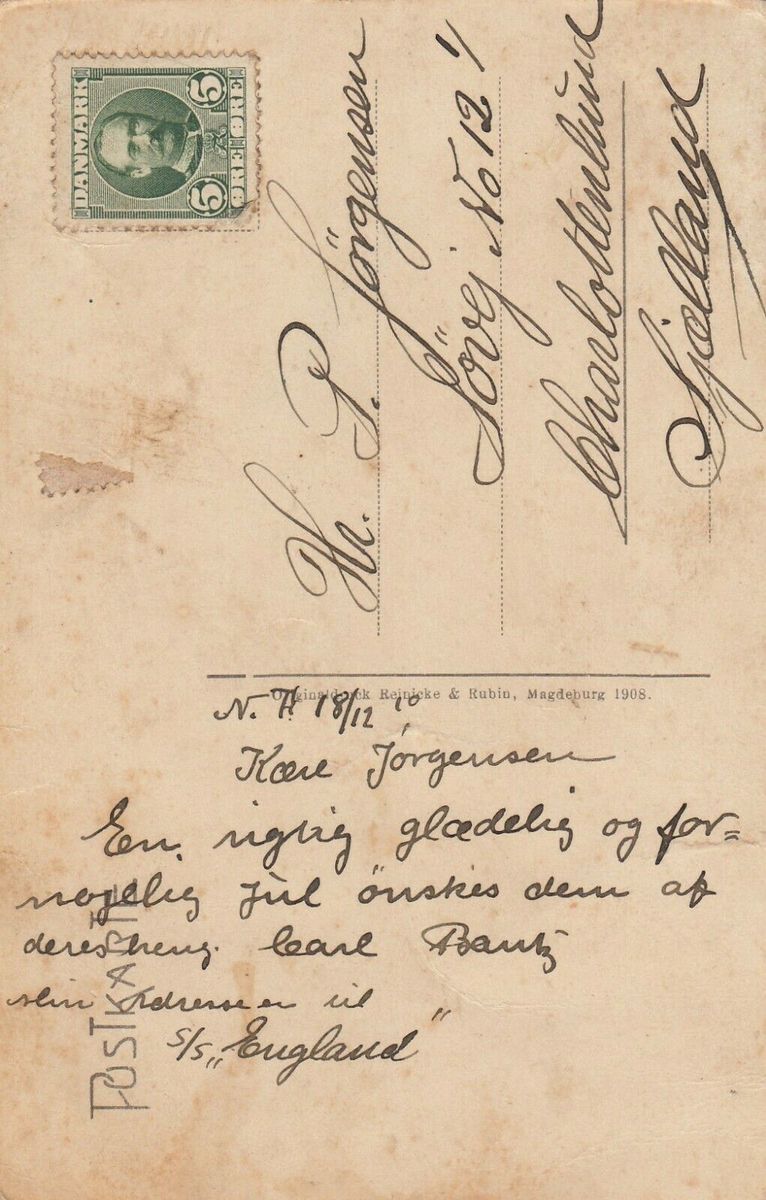 DANMARK
5 ØRE 5
Hr. P. Jörgensen
Sövej No 12 1/
Charlottenlund
Sjælland
Originaldruck Reinicke & Rubin, Magdeburg 1908.
N. F. 18/12 10
Kære Jørgensen
En rigtig glædelig og for=
nøjelig Jul önskes dem af
deres heng. Carl Bantz
Adresse er til
S/S „England"
POSTKARTE